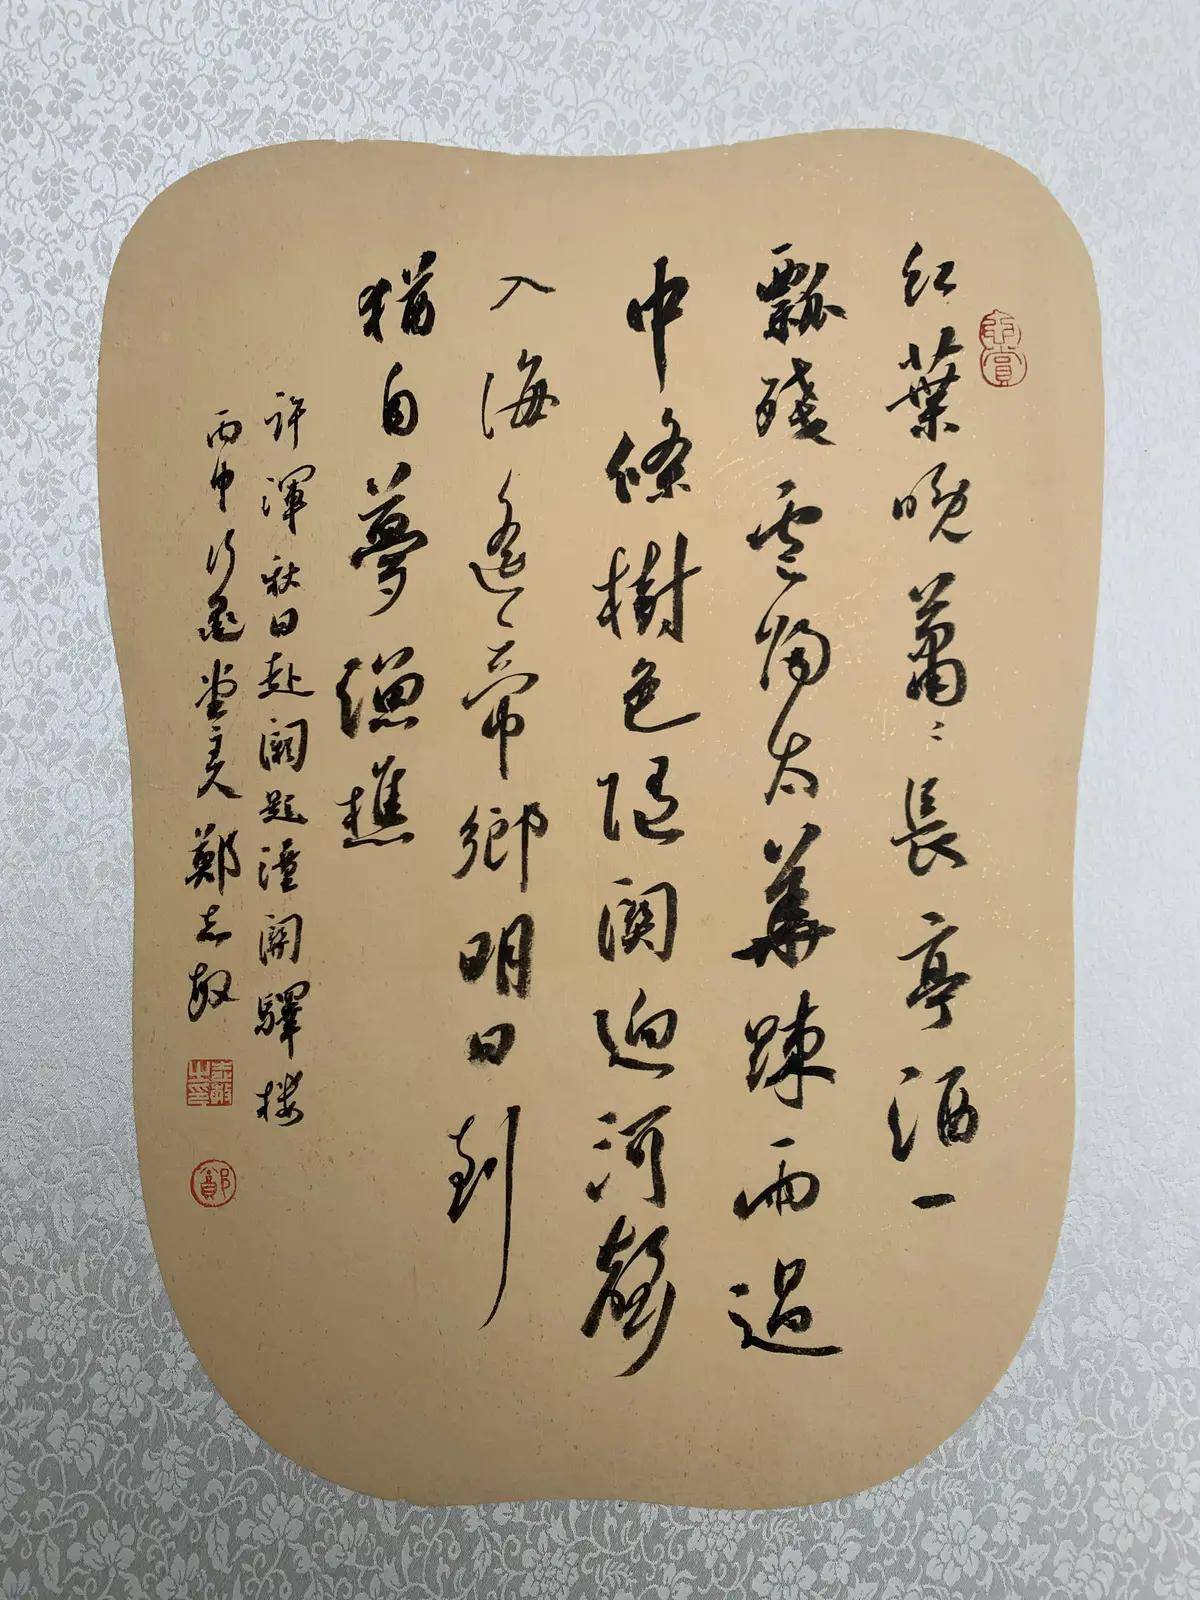 紅葉晚蕭々長亭酒一
瓢殘雲歸太華踈雨過
中條樹色隨關迥河聲
入海遙々帝鄉明日到
猶自夢漁樵
許渾秋日赴闕題潼關驛樓
丙申行墨堂主人鄭志敏
鄭